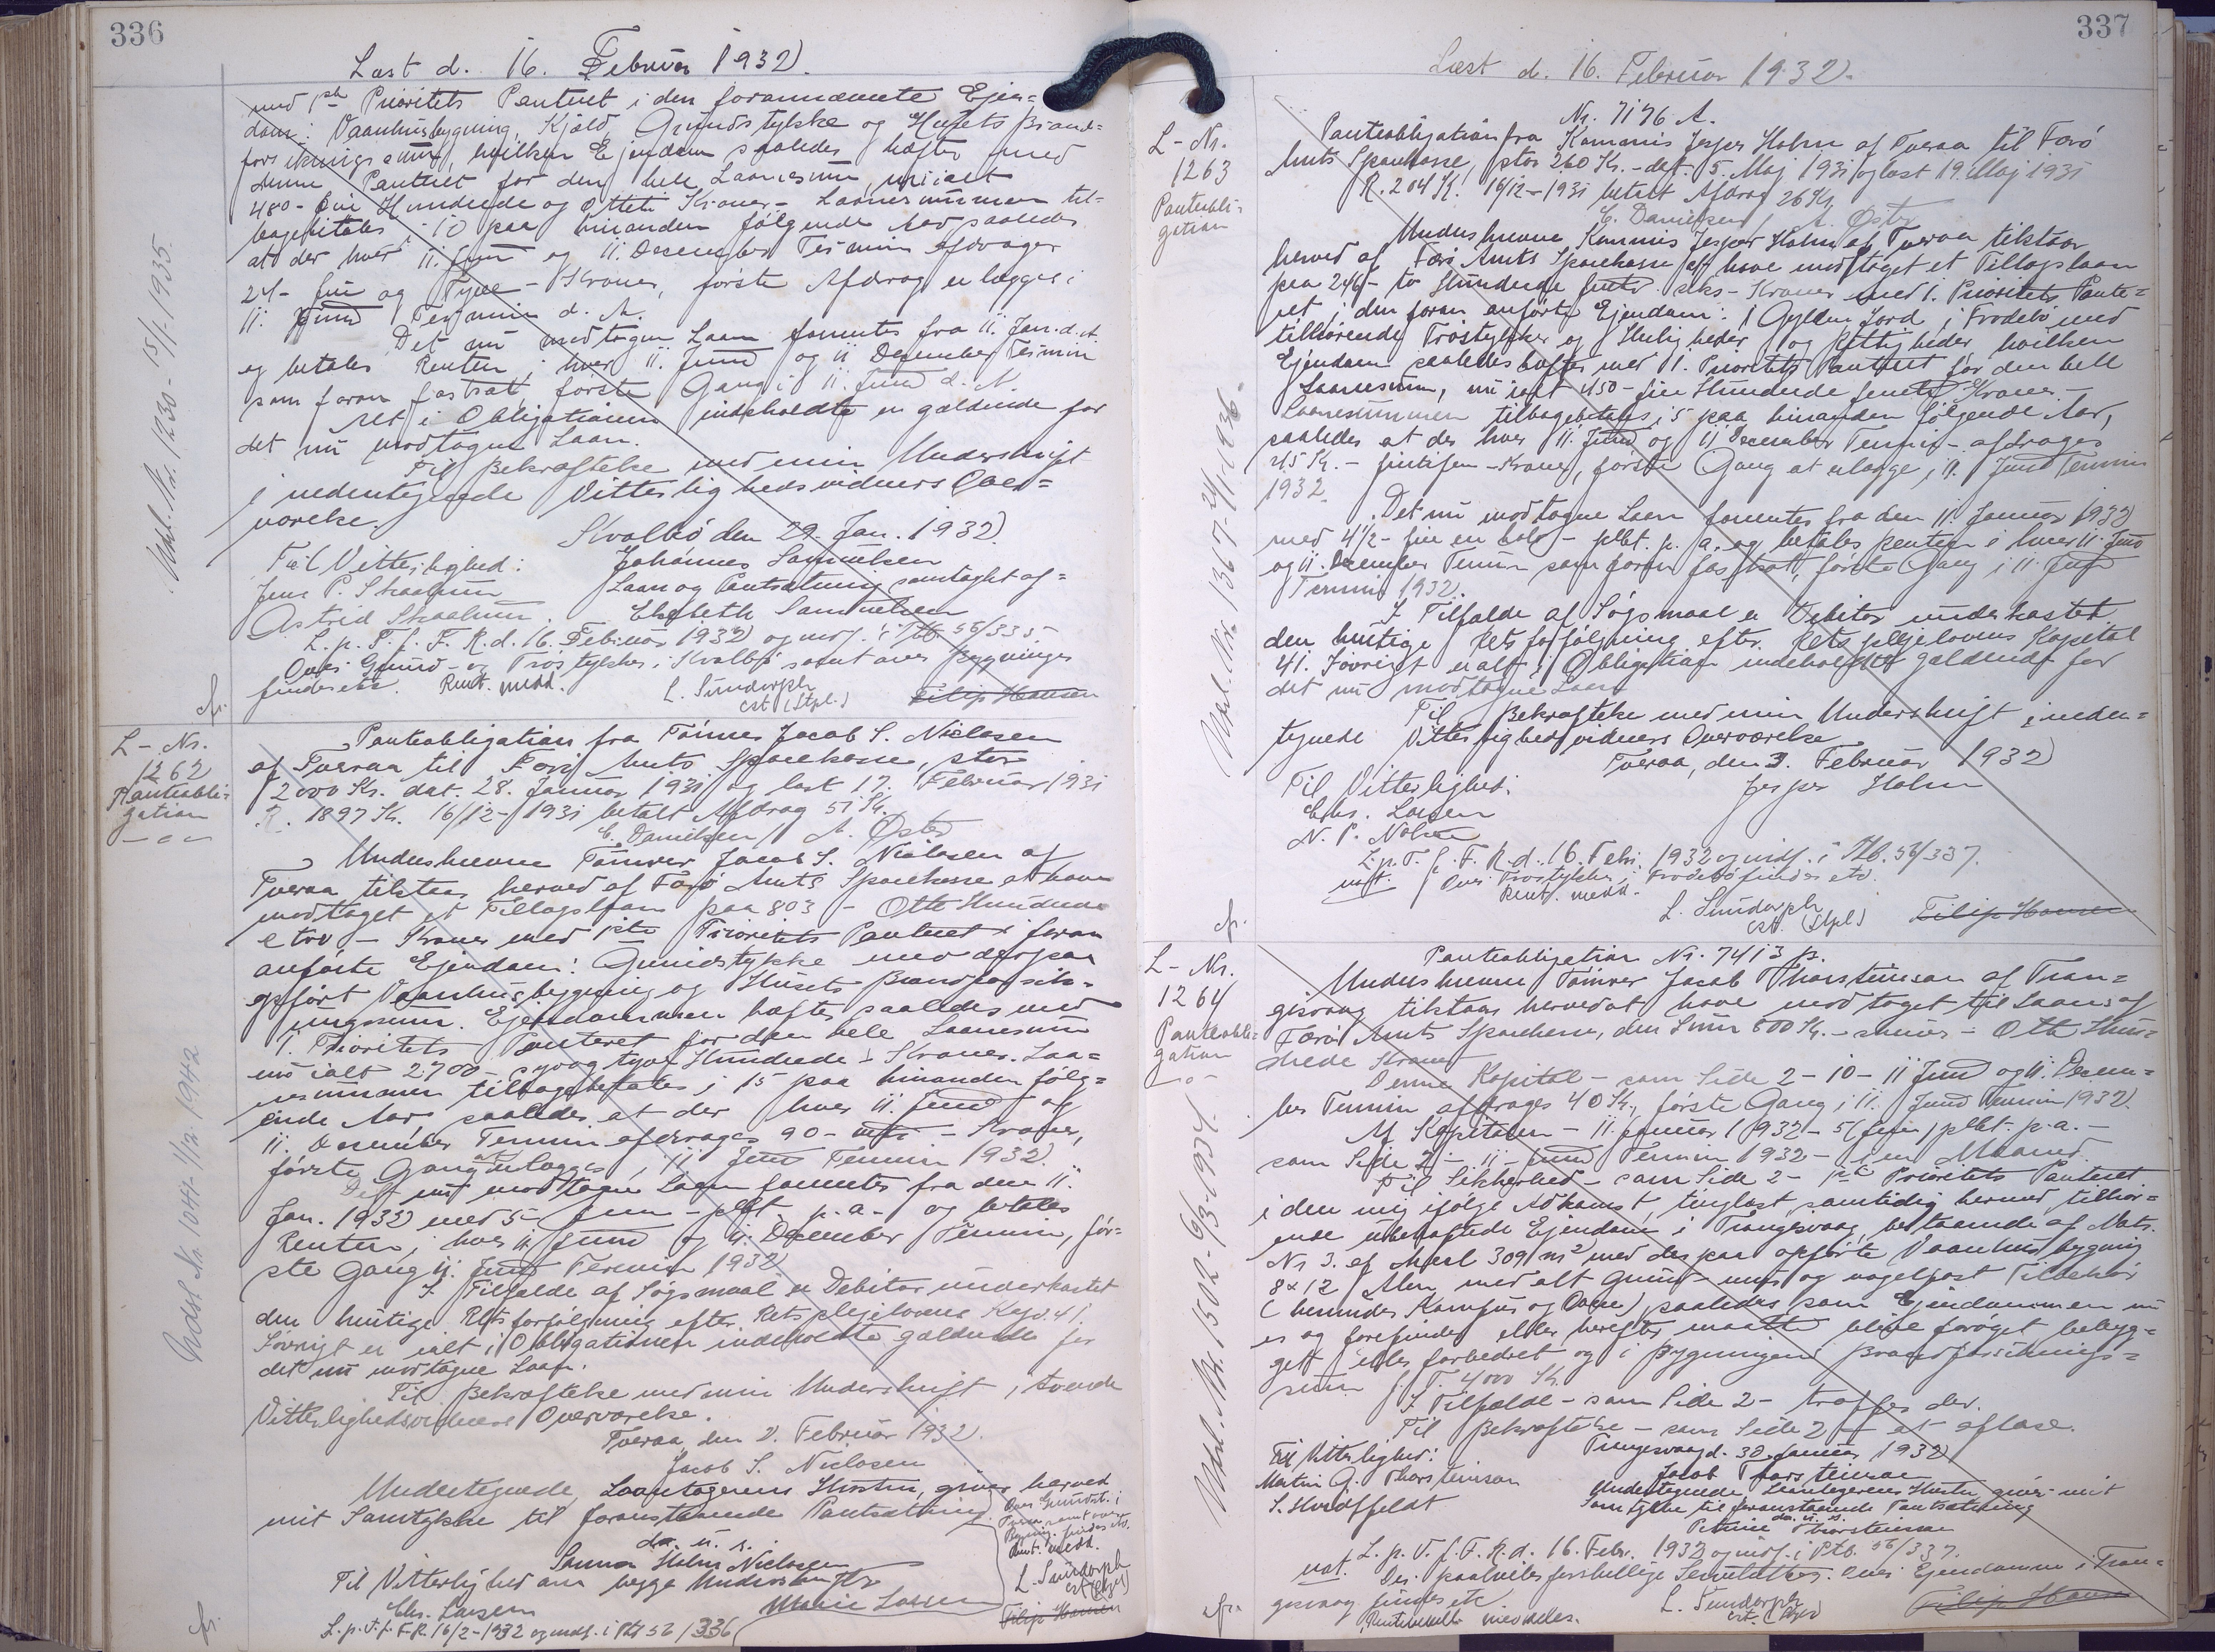 336
Læst d. 16. Februar 1932.
med 1ste Prioritets Panteret i den forannævnte Ejen=
dom: Vaanhusbygning, Kjæld, Grundstykke og Husets Brand=
forsikringssum, hvilken Ejendom saaledes hæfter med
denne Panteret for den hele Laanesum, nu ialt
480 - Fire Hundrede og Otteti Kroner - Laanesummen til=
bagebetales i 10 paa hinanden følgende Aar saaledes
at der hver 11. Juni og 11. December Termin afdrages
24 - fire og Tyve - Kroner, første Afdrag erlægges i
11. Juni Termin d. A.
Det nu modtagne Laan forrentes fra 11. Jan. d. A.
og betales Renten i hver 11. Juni og 11 December Termin
som foran fastsat, første Gang i 11. Juni d. A.
Alt i Obligationen indeholdte er gældende for
det nu modtagne Laan.
Til Bekræftelse med min Underskrift
i nedentegnede Vitterlighedsvidners Over=
værelse.
Kvalbø den 29. Jan. 1932.
Til Vitterlighed: Johannes Samuelsen
Jens P. Skaalum Laan og Pantsætning samtykt af=
Astrid Skaalum. Elsebeth Samuelsen
L. p. T. f. F. R. d. 16. Februar 1932 og indf. i Ptb. 56/335.
Over Grund- og Trøstykker i Kvalbø samt over Bygninger
findes etc. Rent. medd. L. Sundorph
cst. (Stpl.) Filip Hansen
Udsl. Nr. 1230 - 15/1. 1935.
L - Nr.
1262
Panteobli-
gation
Panteobligation fra Tømrer Jacob S. Niclasen
af Tveraa til Færø Amts Sparekasse, stor
2000 Kr. dat. 28. Januar 1931 og læst 17. Februar 1931
R. 1897 Kr. 16/12 - 1931 betalt Afdrag 51 Kr.
C. Danielsen / A. Østerø
Undershrevne Tømrer Jacob S. Niclasen af
Tveraa tilstaar herved af Færø Amts Sparekasse at have
modtaget et Tillægslaan paa 803 - Otte Hundrede
e tre - Kroner med 1ste Prioritets Panteret i foran
anførte Ejendom: Grundstykke med derpaa
opført Vaanhusbygning og Husets Brandforsik-
ringssum. Ejendommen hæfter saaledes med
1. Prioritets Panteret for den hele Laanesum
nu ialt 2700 - syv og tyve Hundrede - Kroner. Laa=
nesummen tilbagebetales i 15 paa hinanden følg=
ende Aar, saaledes at der hver 11. Juni og
11. December Termin afdrages 90 - niti - Kroner,
første Gang at erlægges i 11 Juni Termin 1932.
Det nu modtagne Laan forrentes fra den 11.
Jan. 1932 med 5 - fem - pCt. p. a. - og betales
Renten i hver 11. Juni og 11. December Termin, før=
ste Gang 11. Juni Termin 1932
I Tilfælde af Søgsmaal er Debitor underkastet
den hurtige Retsforfølgning efter Retsplejelovens Kap. 41.
Iøvrigt er ialt i Obligationen indeholdte gældende for
det nu modtagne Laan.
Til Bekræftelse med min Underskrift i tvende
Vitterlighedsvidners Overværelse.
Tveraa, den 2. Februar 1932.
Jacob S. Niclasen
Undertegnede, Laantagerens Hustru, giver herved
mit Samtykke til foranstaaende Pantsætning.
da. u. s.
Sanna Holm Niclasen
Til Vitterlighed om begge Underskrifter
Chr. Larsen Marie Larsen
L. p. T. f. F. R. 16/2 - 1932 og indf. i Ptb 56/336
Over Grundst. i
Tveraa samt over
Bygning. findes etc.
Rent. medd.
L. Sundorph
cst. (Stpl)
Filip Hansen
Udsl. Nr. 1041. 1/12. 1942
337
Læst d. 16. Februar 1932.
L - Nr.
1263
Panteobli-
gation
Nr. 7176 A.
Panteobligation fra Kommis Jesper Holm af Tveraa til Færø
Amts Sparekasse, stor 260 Kr. - dat. 5. Maj 1931 og læst 19. Maj 1931
R. 204 Kr. 16/12 - 1931 betalt Afdrag 26 Kr.
C. Danielsen / A. Østerø
Undershrevne Kommis Jesper Holm af Tveraa tilstaar
herved af Færø Amts Sparekasse at have modtaget et Tillægslaan
paa 246 - to Hundrede firti seks - Kroner med 1. Prioritets Pante=
ret i den foran anførte Ejendom: 1 Gylden Jord i Frodebø med
tilhørende Trøstykker og Herligheder og Rettigheder hvilken
Ejendom saaledes hæfter med 1. Prioritets Panteret for den hele
Laanesum, nu ialt 450 - fire Hundrede femti - Kroner.
Laanesummen tilbagebetales i 5 paa hinanden følgende Aar,
saaledes at der hver 11. Juni og 11 December Termin afdrages
45 Kr. - firtifem - Kroner, første Gang at erlægge i 11. Juni Termin
1932.
Det nu modtagne Laan forrentes fra den 11. Januar 1932
med 4½ - fire en halv - pCt. p. a. og betales Renten i hver 11. Juni
og 11. December Termin som foran fastsat, første Gang i 11. Juni
Termin 1932.
I Tilfælde af Søgsmaal er Debitor underkastet
den hurtige Retsforfølgning efter Retsplejelovens Kapitel
41. Iøvrigt er alt i Obligation indeholdte gældende for
det nu modtagne Laan
Til Bekræftelse med min Underskrift i neden=
tegnede Vitterlighedsvidners Overværelse
Tveraa, den 3. Februar 1932
Til Vitterlighed: Jesper Holm
Chr. Larsen
N. P. Nolsøe
L. p. T. f. F. R. d. 16. Febr. 1932 og indf. i Ptb. 56/337.
Over Trøstykker i Frodebø findes etc.
Rent. medd.
L. Sundorph
cst. (Stpl) Filip Hansen
Udsl. Nr. 1367 - 24/1 - 1936.
L - Nr.
1264
Panteobli-
gation
Panteobligation Nr. 7413 p.
Undershrevne Tømrer Jacob Thorsteinson af Tran=
gisvaag tilstaar herved at have modtaget til Laans af
Færø Amts Sparekasse, den Sum 800 Kr. - skriver - Otte Hun=
drede Kroner
Denne Kapital - som Side 2 - 10 - 11 Juni og 11. Decem=
ber Termin afdrages 40 Kr., første Gang i 11. Juni Termin 1932.
Af Kapitalen - 11. Januar 1932 - 5 (fem) pCt. p. a. -
som Side 2 - 11 - Juni Termin 1932 - 1 en Maaned.
Til Sikkerhed - som Side 2 - 1ste Prioritets Panteret
i den mig ifølge Adkomst, tinglæst samtidig hermed tilhør=
ende ubehæftede Ejendom i Trangisvaag, bestaaende af Matr.
Nr 3. af Areal 309 m² med der paa opførte Vaanhusbygning
8 x 12 Alen med alt grund - mur og nagelfast Tilbehør
(herunder Komfur og Ovne) saaledes som Ejendommen nu
er og forefindes eller herefter maatte blive forøget, bebyg=
get eller forbedret og i Bygningens Brandforsiknings=
sum 4000 Kr.
I Tilfælde - som Side 2 - træffes der.
Til Bekræftelse - som Side 2 - at aflæse.
Trangisvaag d. 30. Januar 1932
Til Vitterlighed: Jacob Thorsteinson
Martin G. Thorsteinson Undertegnede, Laantagerens Hustru giver mit
S. Hvidtfeldt Samtykke til foranstaaende Pantsætning
da. u. s.
Petrine Thorsteinson
L. p. T. f. F. R. d. 16. Febr. 1932 og indf. i Ptb. 56/337.
Der paahviler forskellige Servitutter. Over Ejendomme i Tran=
gisvaag findes etc. L. Sundorph
Rentenedsætt. meddeles. cst. (Stpl) Filip Hansen
Udsl. Nr. 1502 - 6/3 - 1934.